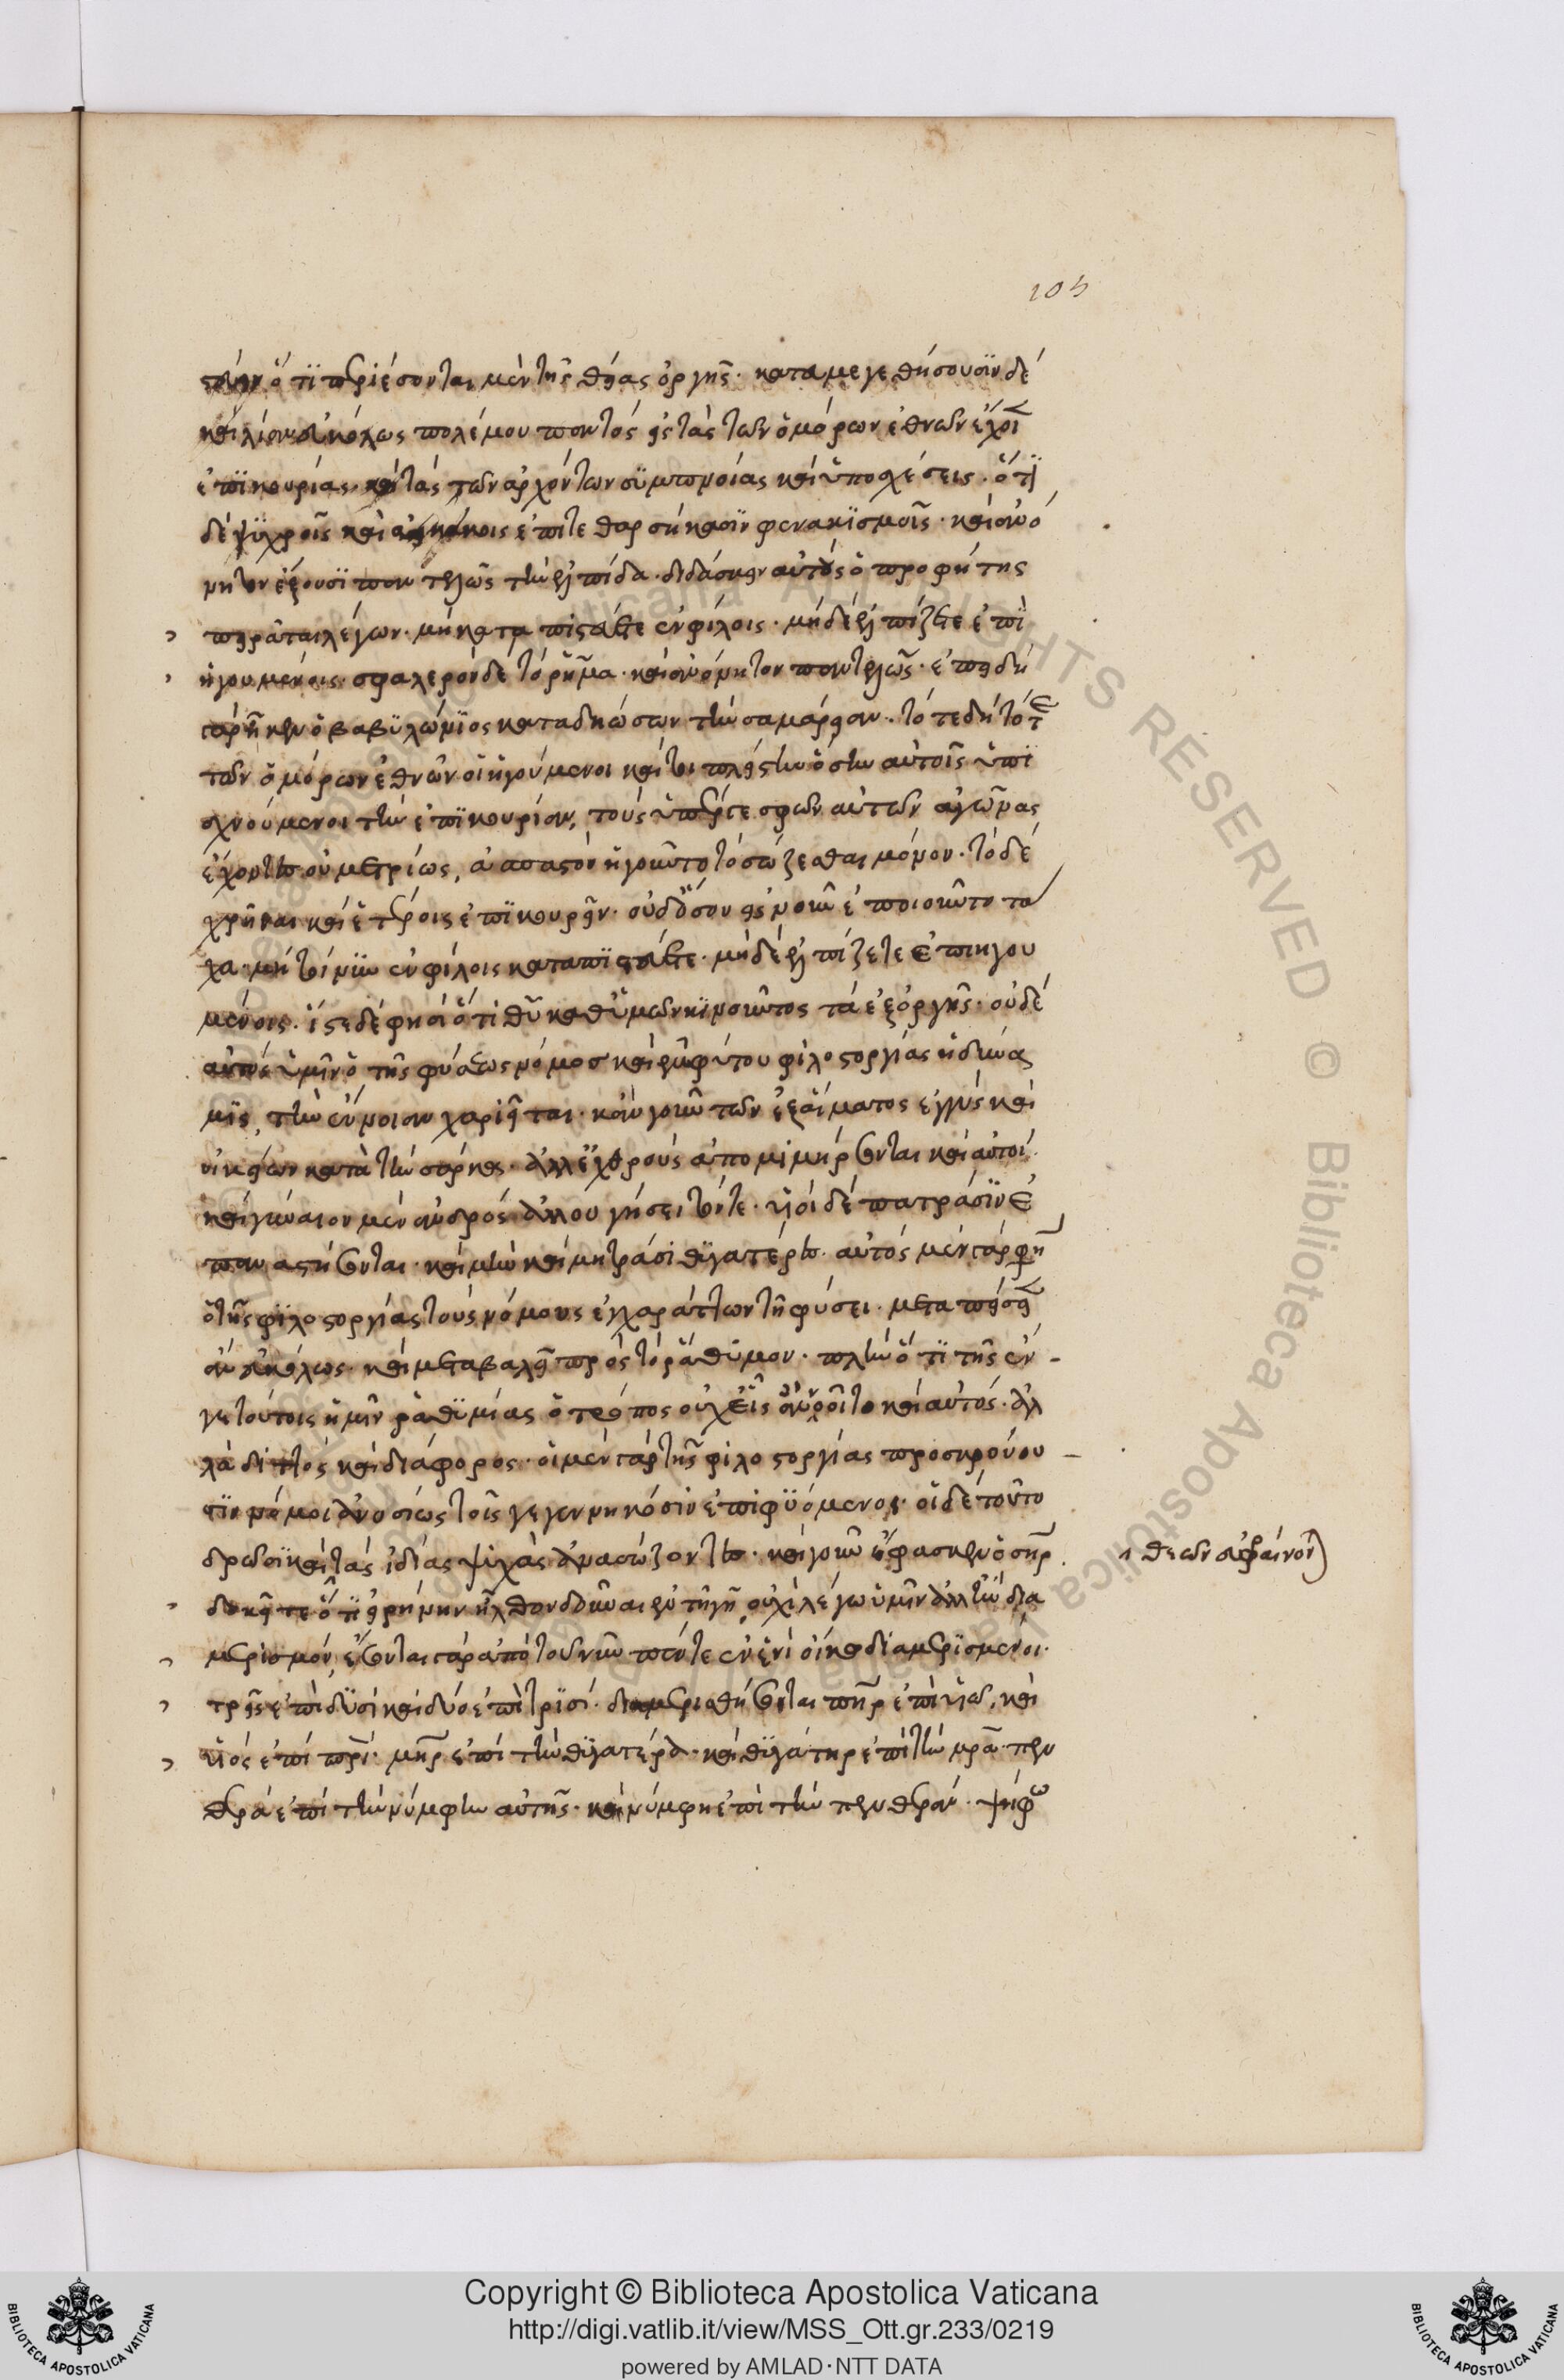 105
ὅτι περιέσονται μὲν τῆς θείας ὀργῆς· καταμεγεθήσουσιν δὲ
καὶ λίαν εὐκόλως πολέμου παντὸς εἰς τὰς τῶν ὁμόρων ἐθνῶν
ἐπικουρίας καὶ τὰς τῶν ἀρχόντων συμπνοίας καὶ ὑποσχέσεις· ὅτι
δὲ ψυχροῖς καὶ ἐπιτεθαρσήκασιν φενακισμοῖς· καὶ ἀνό
νητον ἕξουσι παντελῶς τὴν ἐλπίδα· διδάσκειν αὐτοὺς ὁ προφήτης
πειρᾶται λέγων· μὴ καταπιστεύετε ἐν φίλοις· μηδὲ ἐλπίζετε ἐπὶ
ἡγουμένοις· σφαλερὸν δὲ τὸ ῥῆμα· καὶ ἀνόητον παντελῶς· ἐπειδὴ
γὰρ ἧκεν ὁ βαβυλώνιος καταδῃώσων τὴν σαμάρειαν· τότε δὴ τότε
τῶν ὁμόρων ἐθνῶν οἱ ἡγούμενοι καίτοι πλείστην ὅσην αὐτοῖς ὑπι
σχνούμενοι τὴν ἐπικουρίαν, τοὺς ὑπέρ τε σφῶν αὐτῶν ἀγῶνας
ἔχοντες οὐ μετρίως, ἀγαπαστὸν ἡγοῦντο τὸ σώζεσθαι μόνον· τὸ δὲ
χρῆναι καὶ ἑτέροις ἐπικουρεῖν· οὐδ' ὅσον εἰς νοῦν ἐποιοῦντο τά
χα· μὴ τοίνυν ἐν φίλοις καταπιστεύετε· μηδὲ ἐλπίζετε ἐπὶ ἡγου
μένοις· ἴστε δέ φησι ὅτι θεοῦ καθ' ὑμῶν κινοῦντος τὰ ἐξ ὀργῆς· οὐδὲ
αὐτὸς ὑμῖν ὁ τῆς φύσεως νόμος καὶ ἐμφύτου φιλοστοργίας ἡ δύνα
μις, τὴν εὔνοιαν χαριεῖται· κἂν γοῦν τῶν ἐξ αἵματος ἐγγὺς καὶ
οἰκείων κατὰ τὴν σάρκα· ἀλλ' ἐχθροὺς ἀπομιμήσονται καὶ αὐτοὶ·
καὶ γύναιον μὲν ἀνδρὸς ἀλογήσει ποτὲ· υἱοὶ δὲ πατράσιν ἐ
παναστήσονται· καὶ μὴν καὶ μητράσι θυγατέρες· αὐτὸς μὲν γάρ φησιν
ὁ τῆς φιλοστοργίας τοὺς νόμους ἐγχαράττων τῇ φύσει· μεταπείσει
εὐκόλως· καὶ μεταβαλεῖ πρὸς τὸ ῥάθυμον· πλὴν ὅτι τῆς ἐν
γε τούτοις ἡμῖν ῥαθυμίας ὁ τρόπος οὐχ εἷς ἂν ὁρῷτο καὶ αὐτός· ἀλ
λὰ διττὸς καὶ διάφορος· οἱ μὲν γὰρ τῆς φιλοστοργίας προσκρούου
σιν νόμοι ἀνοσίως τοῖς γεγεννηκόσιν ἐπιφυόμενοι· οἱ δὲ τοῦτο
δρῶσι καὶ τὰς ἰδίας ψυχὰς ἀνασώζοντες· καὶ γοῦν ἔφασκεν ὁ σωτήρ
θεὸν
δοκεῖτε ὅτι εἰρήνην ἦλθον δοῦναι ἐν τῇ γῇ οὐχὶ λέγω ὑμῖν ἀλλ' ἢ δια
μερισμόν, ἔσονται γὰρ ἀπὸ τοῦ νῦν πέντε ἐν ἑνὶ οἴκῳ διαμερισμένοι·
τρεῖς ἐπὶ δυσὶ καὶ δύο ἐπὶ τρισί· διαμερισθήσονται πατὴρ ἐπὶ υἱῷ, καὶ
υἱὸς ἐπὶ πατρί· μήτηρ ἐπὶ τὴν θυγατέρα· καὶ θυγάτηρ ἐπὶ τὴν μητέρα· πεν
θερὰ ἐπὶ τὴν νύμφην αὐτῆς· καὶ νύμφη ἐπὶ τὴν πενθεράν·
Copyright © Biblioteca Apostolica Vaticana
http://digi.vatlib.it/view/MSS_Ott.gr.233/0219
powered by AMLAD·NTT DATA
BIBLIOTECA APOSTOLICA VATICANA
BIBLIOTECA APOSTOLICA VATICANA